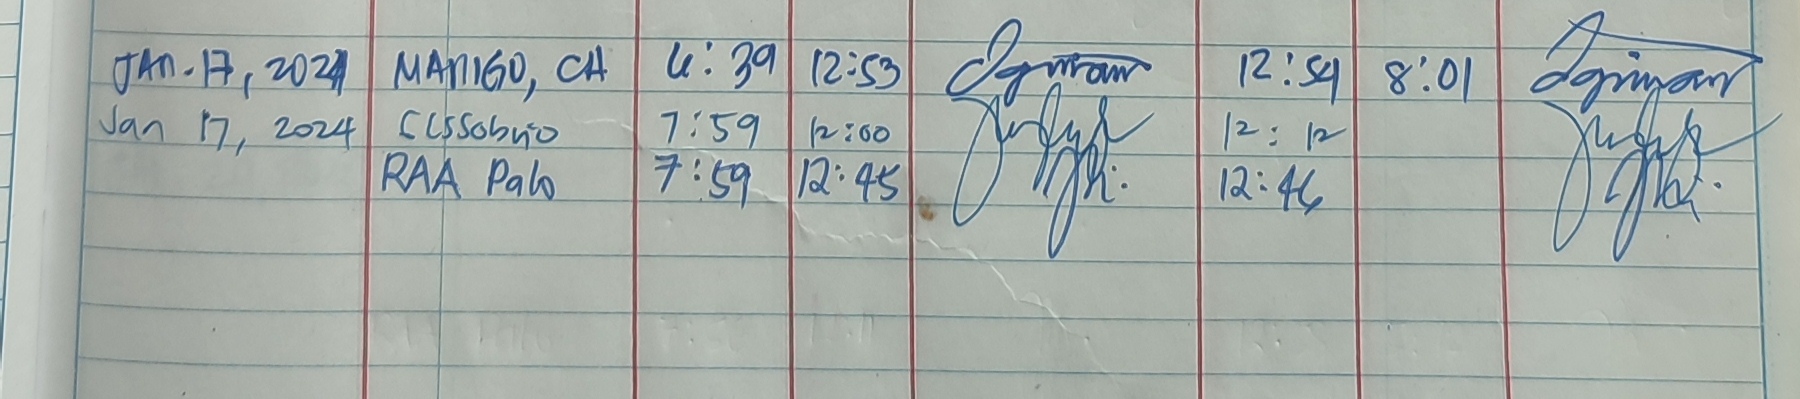 JAN. 17, 2024 MANIGO, CA 6:39 12:53 12:54 8:01
Jan 17, 2024 7:59 12:00 12:12
RAA Palo 7:59 12:45 12:46